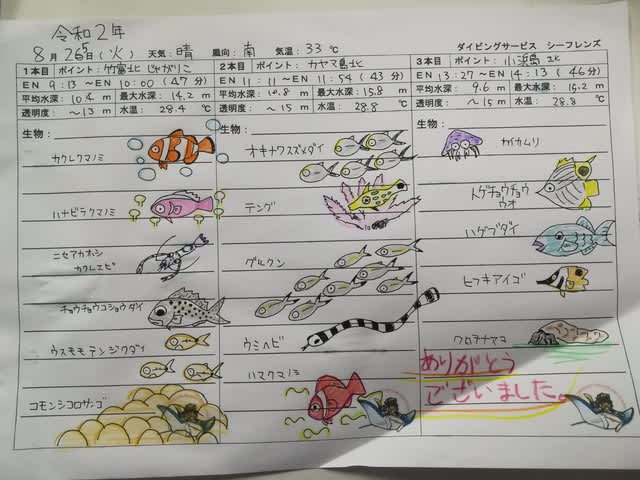 令和2年
8月25日(火) 天気:晴 風向:南 気温:33℃ ダイビングサービス シーフレンズ
1本目 ポイント:竹富北じゃがりこ
EN 9:13〜EN 10:00 (47分)
平均水深:10.4m 最大水深:14.2m
透明度:〜13m 水温:28.4℃
生物:
カクレクマノミ
ハナビラクマノミ
ニセアカホシ
カクレエビ
チョウチョウコショウダイ
ウスモモテンジクダイ
コモンシコロサンゴ
2本目 ポイント:カヤマ島北
EN 11:11〜EN 11:54 (43分)
平均水深:10.8m 最大水深:15.8m
透明度:〜15m 水温:28.8℃
生物:
オキナワスズメダイ
テング
グルクン
ウミヘビ
ハマクマノミ
3本目 ポイント:小浜島北
EN 13:27〜EN 14:13 (46分)
平均水深:9.6m 最大水深:15.2m
透明度:〜15m 水温:28.8℃
生物:
カイカムリ
トゲチョウチョウ
ウオ
ハゲブダイ
ヒフキアイゴ
クロナマコ
ありがとう
ございました。